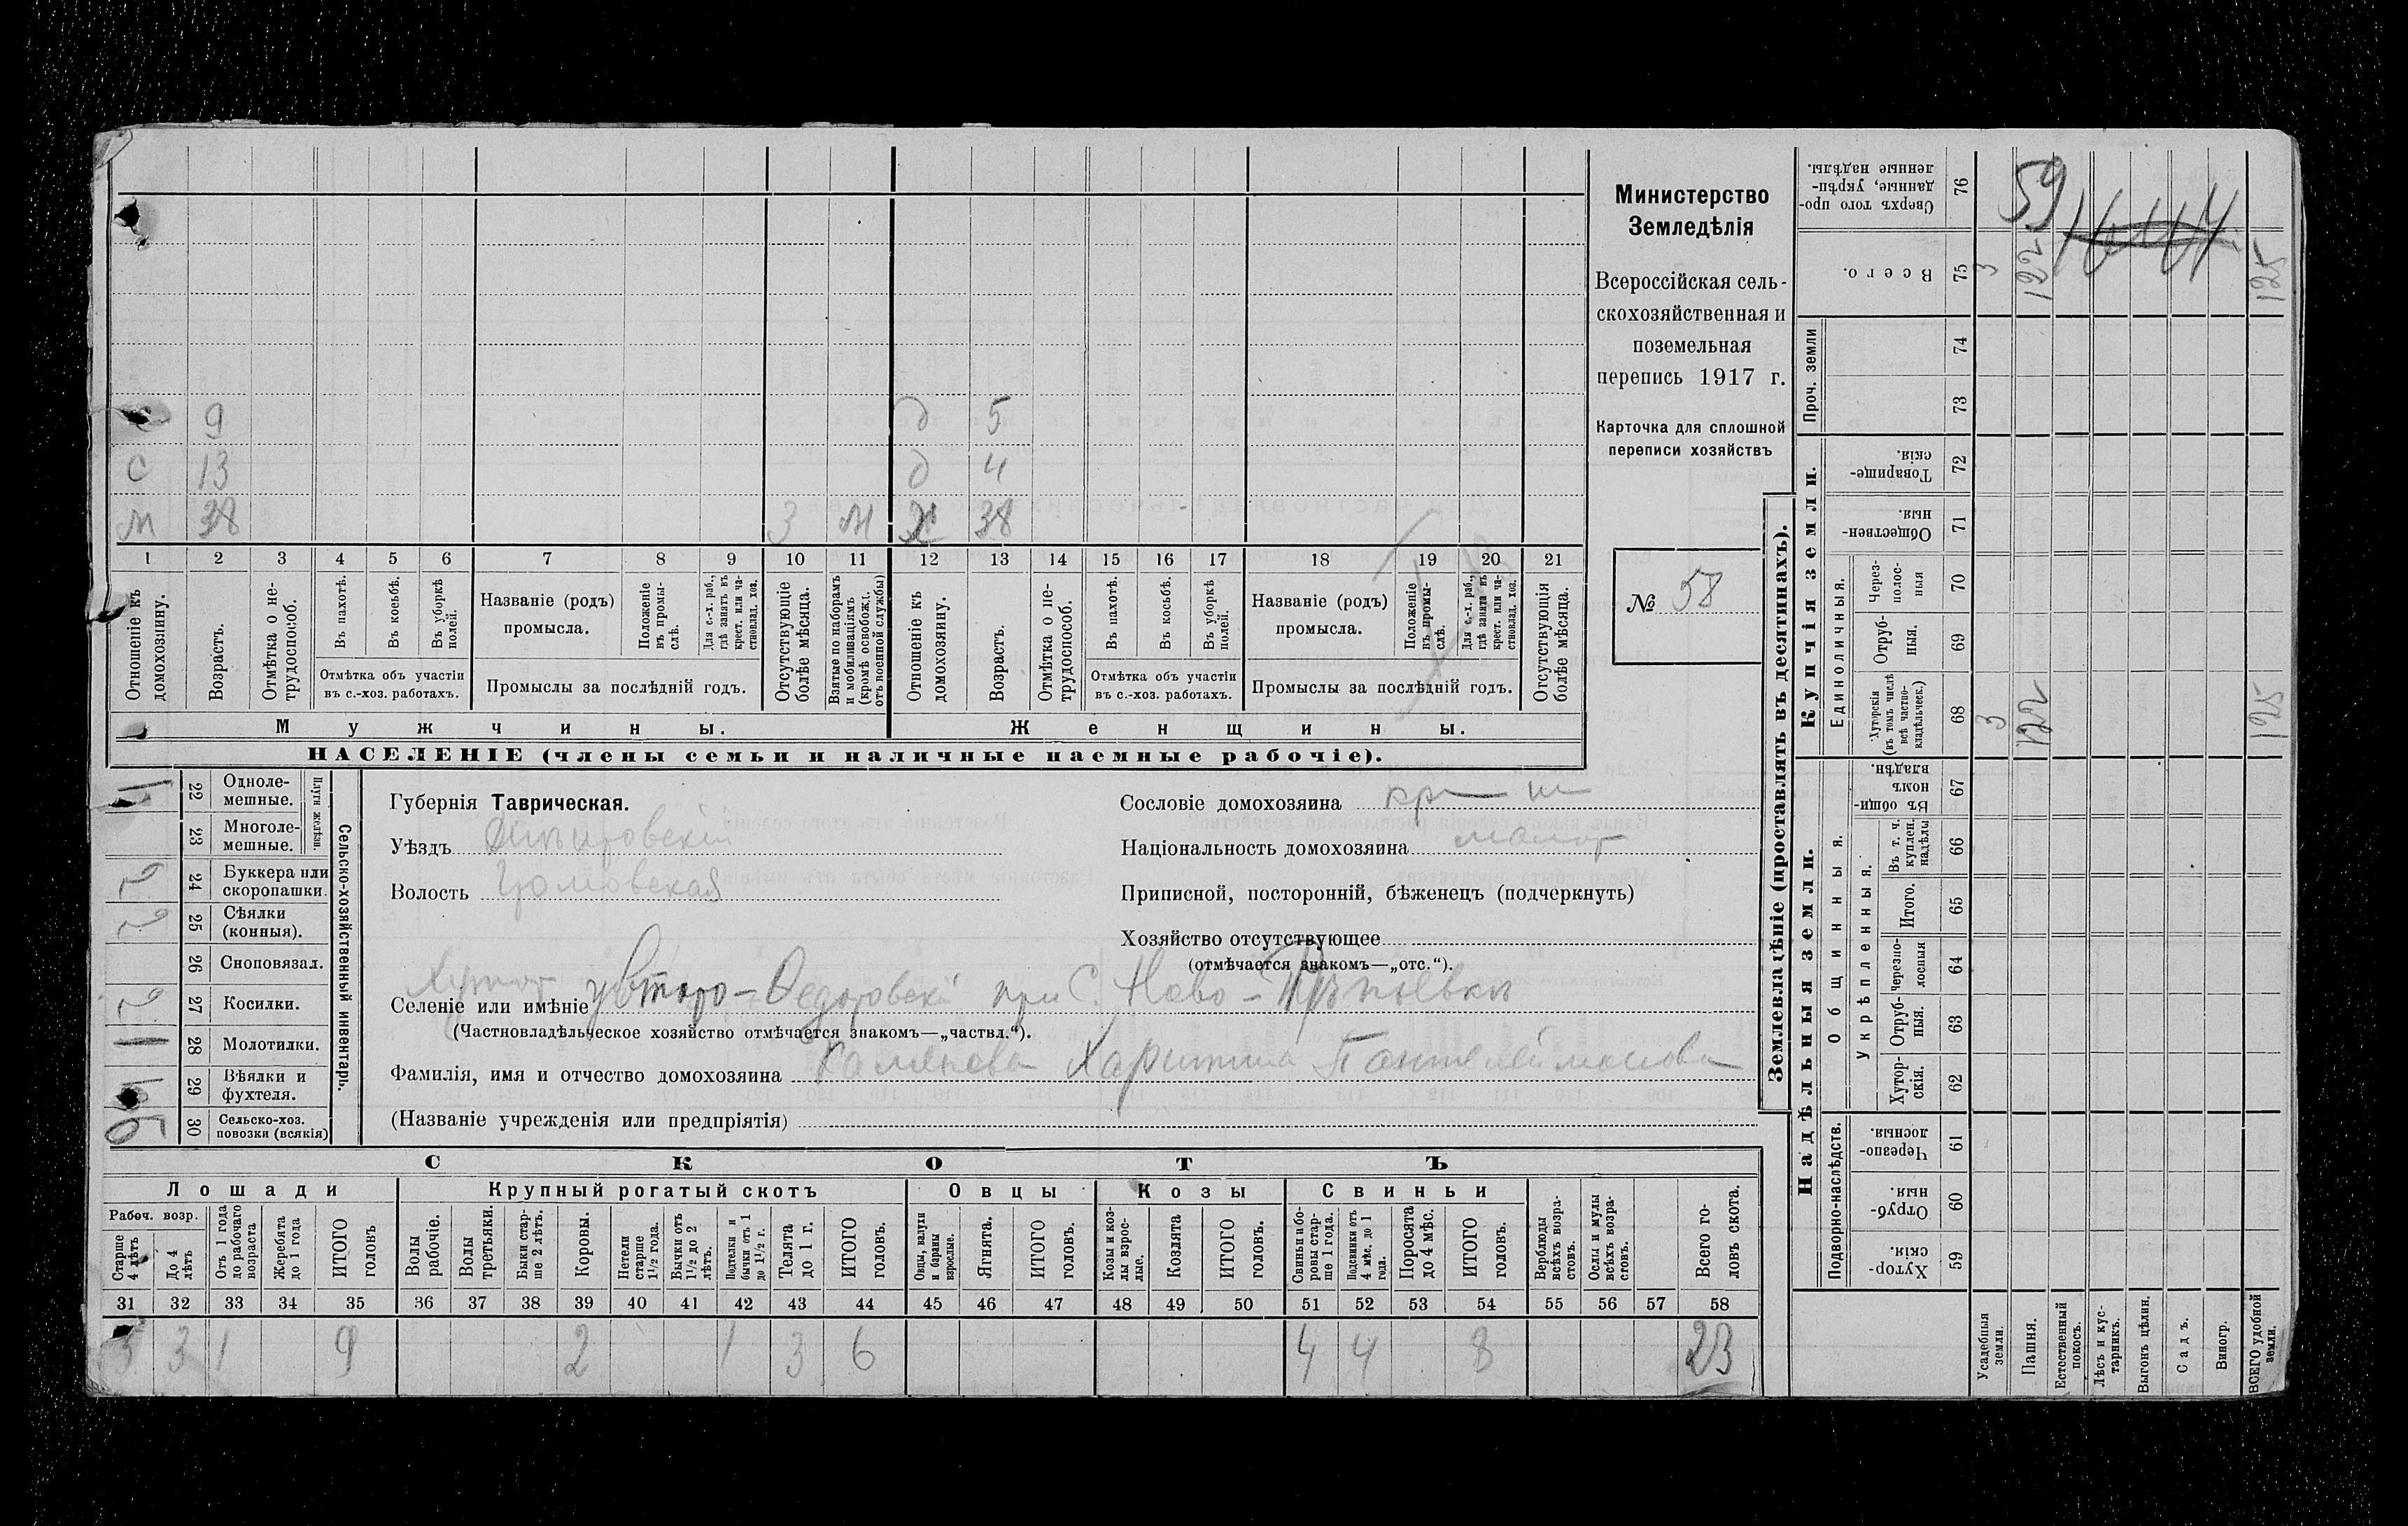 9 д 5
С 13 д 4
М 38 3 М Х 38
1 2 3 4 5 6 7 8 9 10 11 12 13 14 15 16 17 18 19 20 21
Отношеніе къ домохозяину.
Возрастъ.
Отмѣтка о не-трудоспособ.
Въ пахотѣ.
Въ косьбѣ.
Въ уборкѣ полей.
Отмѣтка объ участіи
въ с.-хоз. работахъ.
Названіе (родъ)
промысла.
Положеніе въ промы-слѣ.
Для с.-х. раб., гдѣ занятъ въ крест. или ча-стновлад. хоз.
Промыслы за послѣдній годъ.
Отсутствующіе болѣе мѣсяца.
Взятые по наборамъ и мобилизаціямъ (кромѣ освобожд. отъ военной службы)
Отношеніе къ домохозяину.
Возрастъ.
Отмѣтка о не-трудоспособ.
Въ пахотѣ.
Въ косьбѣ.
Въ уборкѣ полей.
Отмѣтка объ участіи
въ с.-хоз. работахъ.
Названіе (родъ)
промысла.
Положеніе въ промы-слѣ.
Для с.-х. раб., гдѣ занята въ крест. или ча-стновлад. хоз.
Промыслы за послѣдній годъ.
Отсутствующія болѣе мѣсяца.
Мужчины.
Женщины.
НАСЕЛЕНІЕ (члены семьи и наличные наемные рабочіе).
Министерство
Земледѣлія
Всероссійская сель-
скохозяйственная и
поземельная
перепись 1917 г.
Карточка для сплошной
переписи хозяйствъ
№ 58
Сельско-хозяйственный инвентарь.
Плуги желѣзн.
1 22 Одноле-мешные.
23 Многоле-мешные.
2 24 Буккера или скоропашки.
2 25 Сѣялки (конныя).
26 Сноповязал.
2 27 Косилки.
1 28 Молотилки.
29 Вѣялки и фухтеля.
30 Сельско-хоз. повозки (всякія)
Губернія Таврическая.
Уѣздъ Днѣпровскій
Волость
Сословіе домохозяина
Національность домохозяина малор
Приписной, посторонній, бѣженецъ (подчеркнуть)
Хозяйство отсутствующее
(отмѣчается знакомъ—„отс.“).
Хуторъ
Селеніе или имѣніе при С. Ново-
(Частновладѣльческое хозяйство отмѣчается знакомъ—„частвл.“).
Фамилія, имя и отчество домохозяина Каменева Харитина Пантелеймонова
(Названіе учрежденія или предпріятія)
СКОТЪ
Лошади
Крупный рогатый скотъ
Овцы
Козы
Свиньи
Рабоч. возр.
Старше 4 лѣтъ
До 4 лѣтъ
Отъ 1 года до рабочаго возраста
Жеребята до 1 года
ИТОГО головъ
Волы рабочіе.
Волы третьяки.
Быки стар-ше 2 лѣтъ.
Коровы.
Нетели старше 1½ года.
Бычки отъ 1½ до 2 лѣтъ.
Подтелки и бычки отъ 1 до 1½ г.
Телята до 1 г.
ИТОГО головъ.
Овцы, валухи и бараны взрослые.
Ягнята.
ИТОГО головъ.
Козы и коз-лы взрос-лые.
Козлята
ИТОГО головъ.
Свиньи и бо-ровы стар-ше 1 года.
Подсвинки отъ 4 мѣс. до 1 года.
Поросята до 4 мѣс.
ИТОГО головъ.
Верблюды всѣхъ возра-стовъ.
Ослы и мулы всѣхъ возра-стовъ.
Всего го-ловъ скота.
31 32 33 34 35 36 37 38 39 40 41 42 43 44 45 46 47 48 49 50 51 52 53 54 55 56 57 58
5 3 1 9 2 1 3 6 4 4 8 23
Землевладѣніе (проставлять въ десятинахъ).
Надѣльныя земли.
Купчія земли.
Проч. земли
Подворно-наслѣдств.
Общинныя.
Укрѣпленныя.
Единоличныя.
Сверхъ того про-данные, укрѣп-ленные надѣлы. 76
Всего. 75 3 122 125
74
73
Товарище-скія. 72
Обществен-ныя. 71
Через-полос-ныя 70
Отруб-ныя. 69
Хуторскія (въ томъ числѣ всѣ частно-владѣльческ.) 68 3 122 125
Въ общи-нномъ владѣн. 67
Въ т. ч. куплен. надѣлы 66
Итого. 65
Черезпо-лосныя 64
Отруб-ныя. 63
Хутор-скія. 62
Черезпо-лосныя. 61
Отруб-ныя. 60
Хутор-скія. 59
Усадебныя земли.
Пашня.
Естественный покосъ.
Лѣсъ и кус-тарникъ.
Выгонъ цѣлин.
Садъ.
Виногр.
ВСЕГО удобной земли.
59